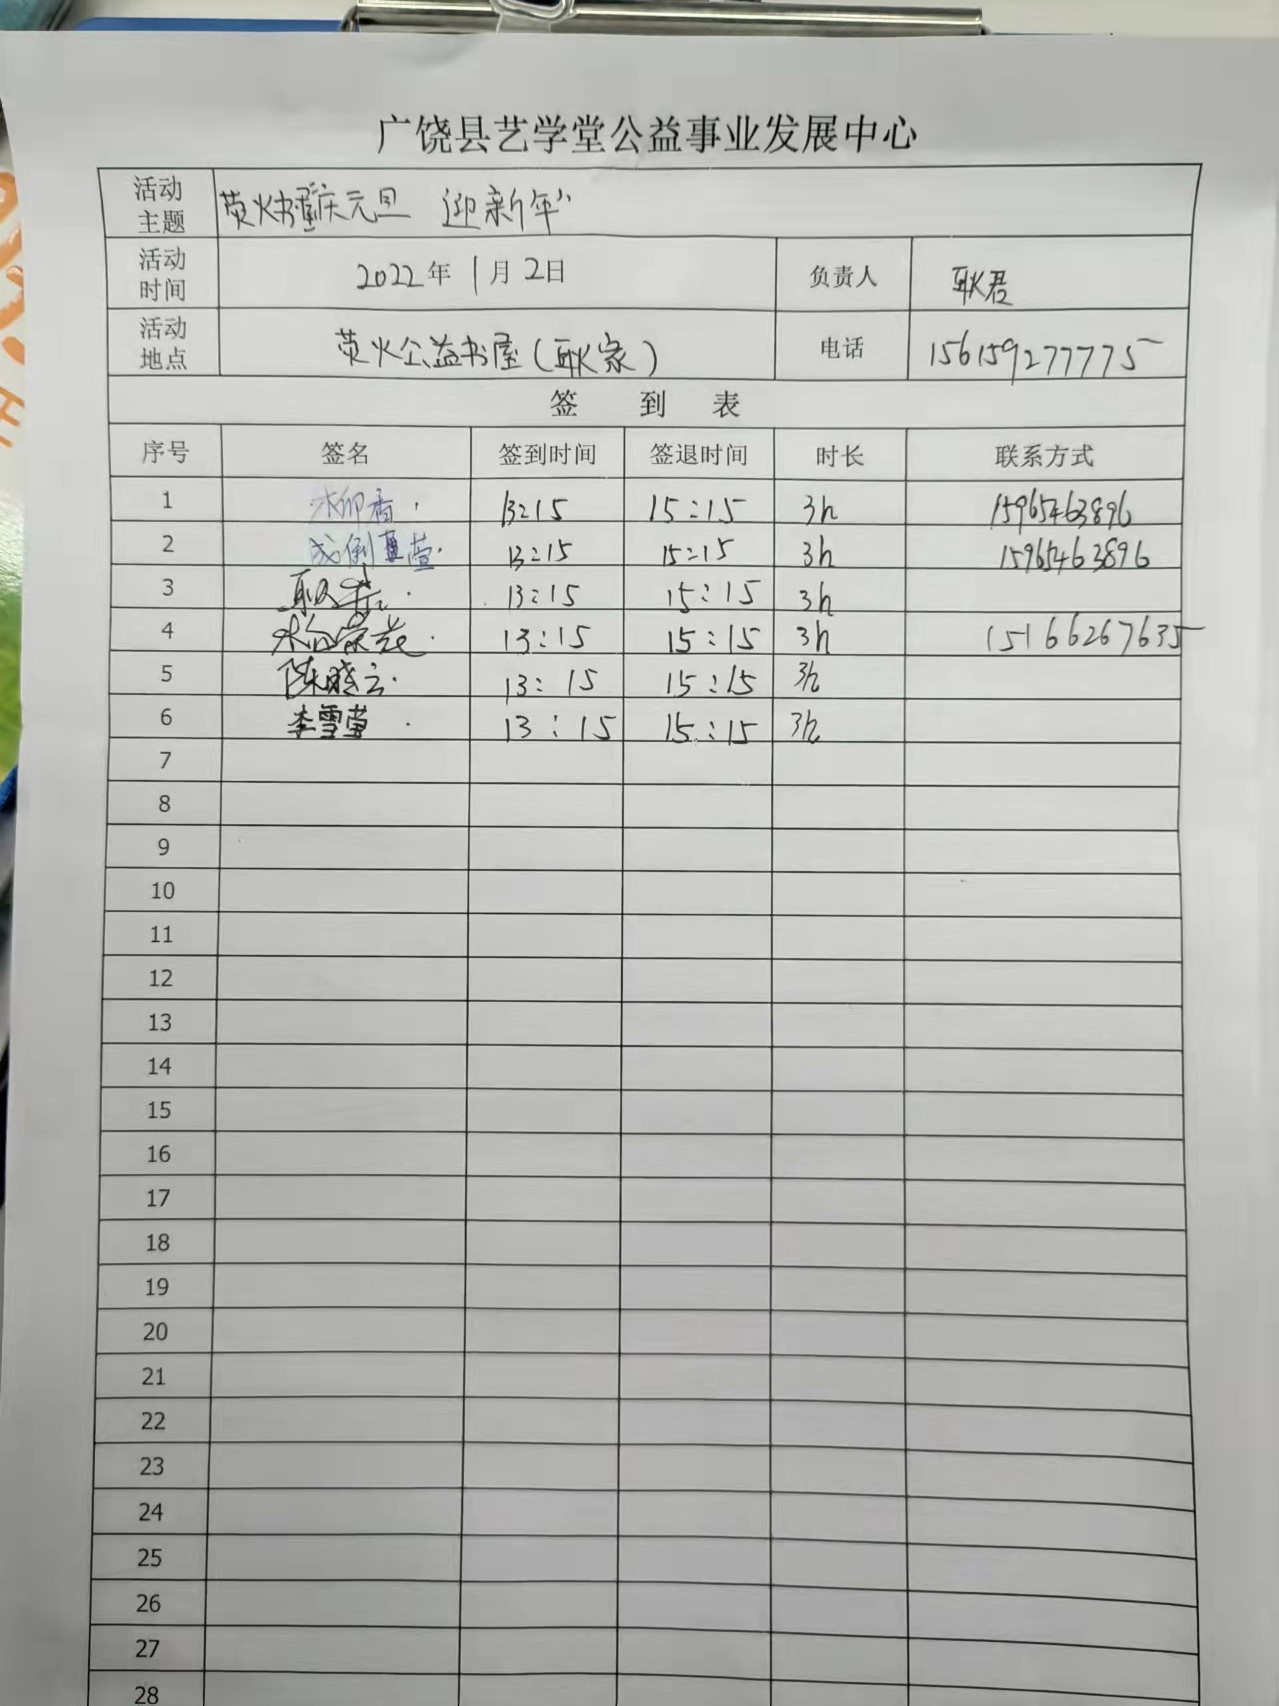 广饶县艺学堂公益事业发展中心
活动主题 萤火书屋庆元旦 迎新年"
活动时间 2022年1月2日 负责人 耿君
活动地点 萤火公益书屋(耿家) 电话 156159277775
签 到 表
序号 签名 签到时间 签退时间 时长 联系方式
1 13:15 15:15 3h 15965463896
2 13:15 15:15 3h 15965463896
3 13:15 15:15 3h
4 13:15 15:15 3h 15166267635
5 陈晓云 13:15 15:15 3h
6 李雪莹 13:15 15:15 3h
7
8
9
10
11
12
13
14
15
16
17
18
19
20
21
22
23
24
25
26
27
28